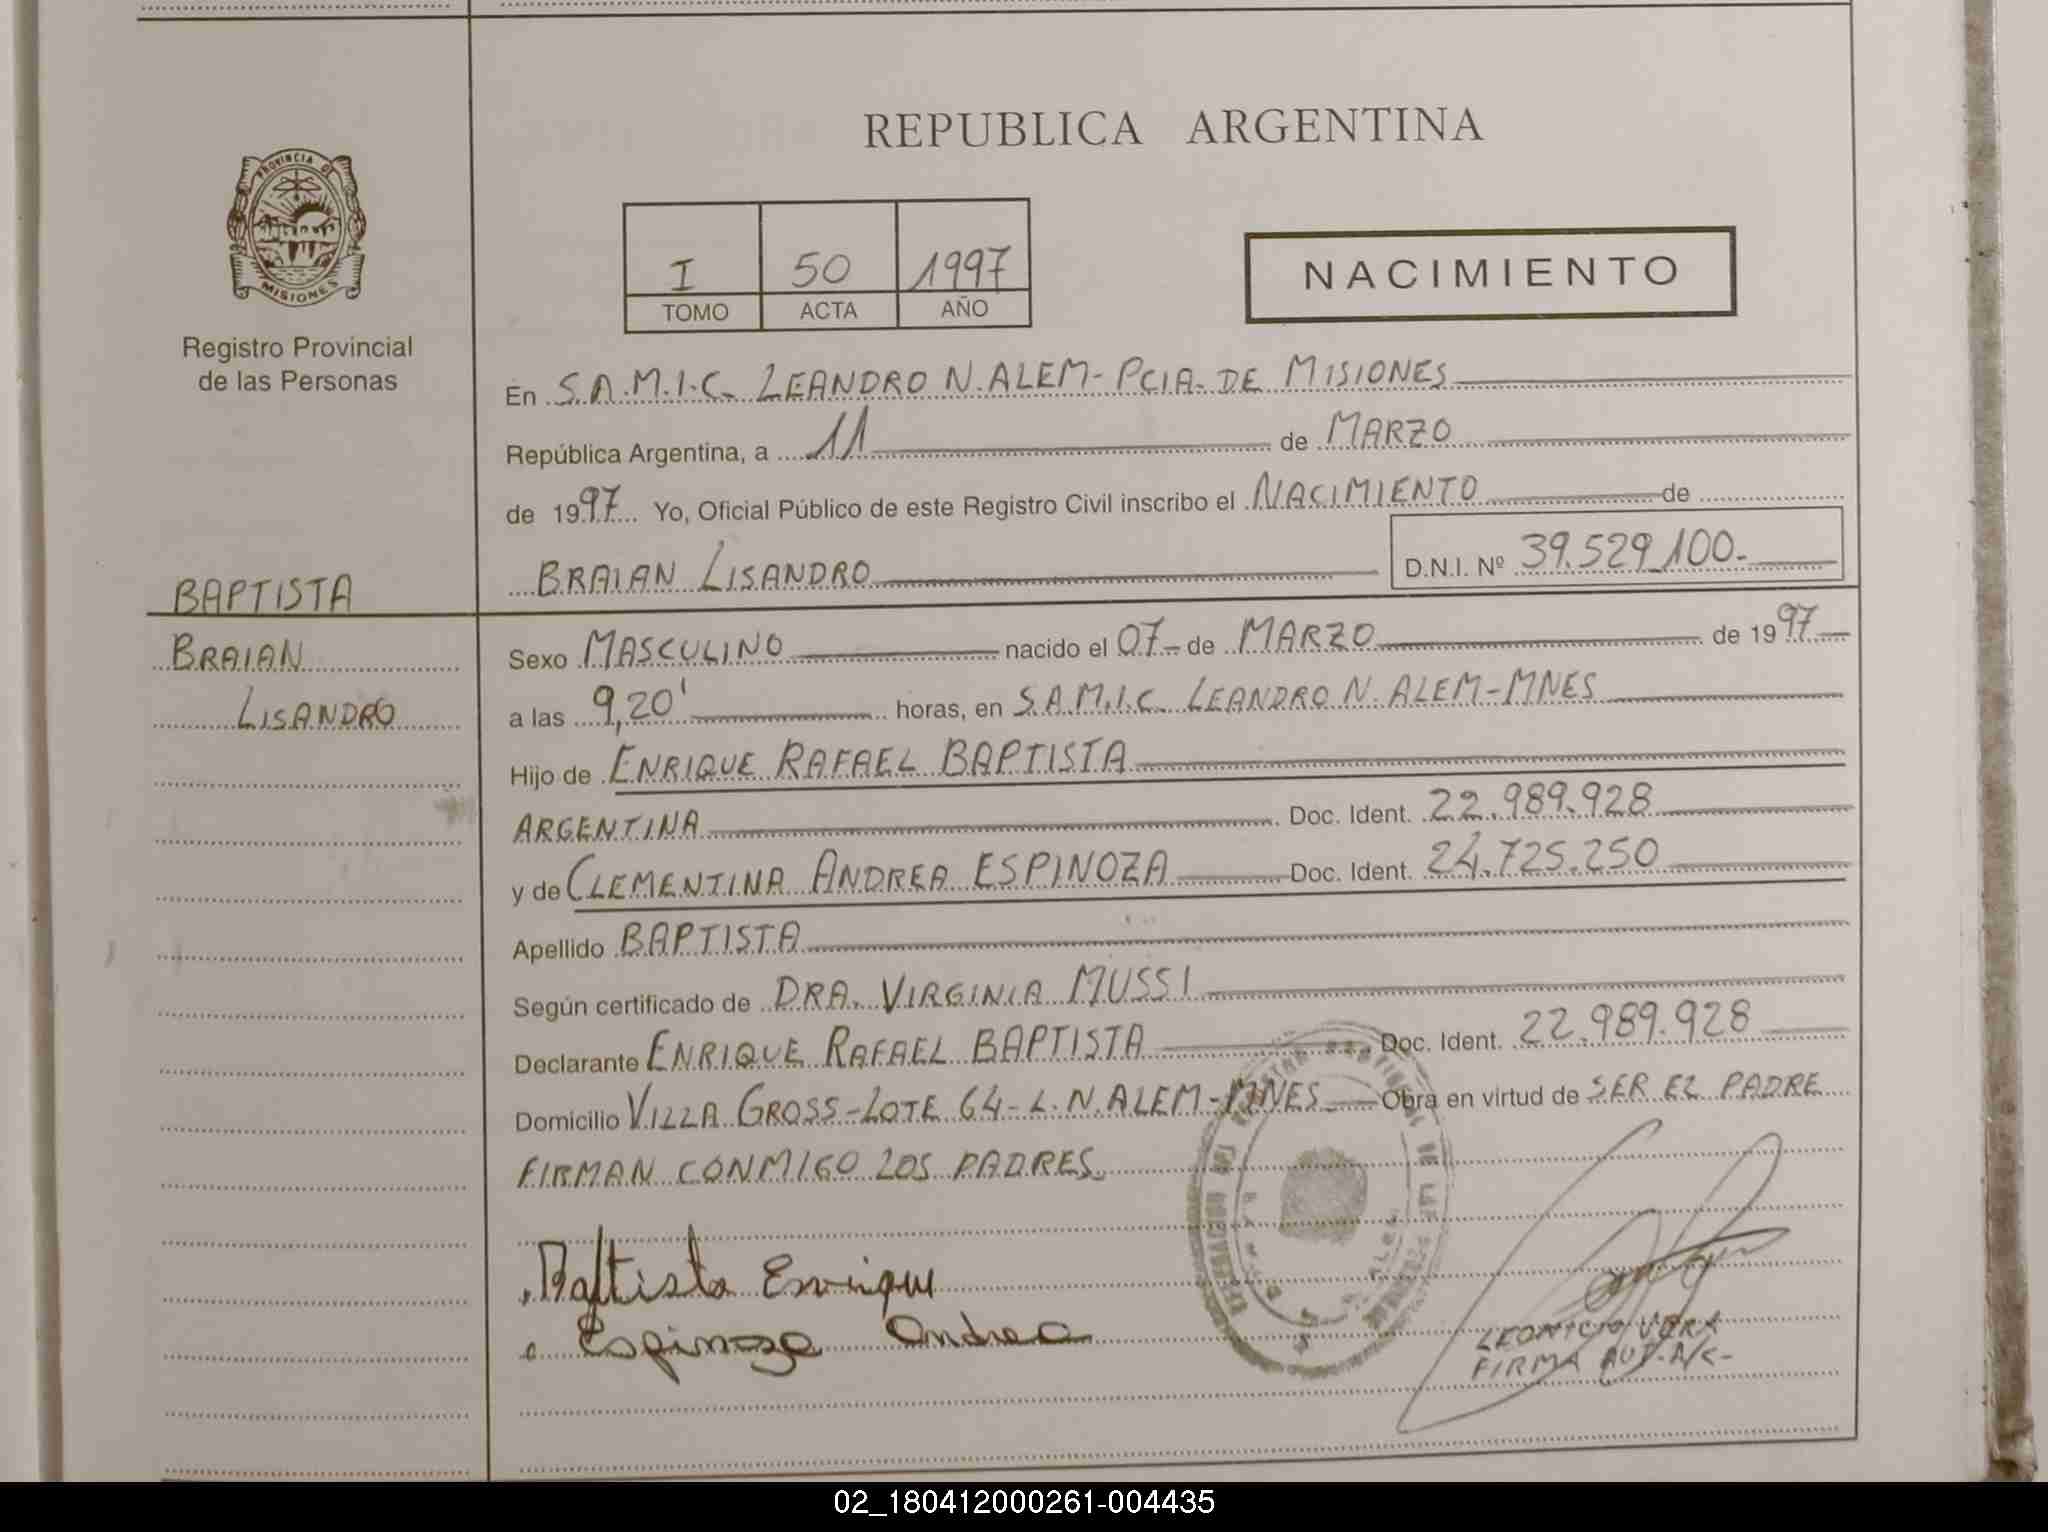 REPUBLICA ARGENTINA
PROVINCIA DE
MISIONES
Registro Provincial
de las Personas
I 50 1997
TOMO ACTA AÑO
NACIMIENTO
En S.A.M.I.C. LEANDRO N. ALEM - PCIA. DE MISIONES
República Argentina, a 11 de MARZO
de 1997 Yo, Oficial Público de este Registro Civil inscribo el NACIMIENTO de
BRAIAN LISANDRO D.N.I. Nº 39.529.100.-
BAPTISTA
BRAIAN
LISANDRO
Sexo MASCULINO nacido el 07 - de MARZO de 1997
a las 9,20' horas, en S.A.M.I.C. LEANDRO N. ALEM - MNES
Hijo de ENRIQUE RAFAEL BAPTISTA
ARGENTINA Doc. Ident. 22.989.928
y de CLEMENTINA ANDREA ESPINOZA Doc. Ident. 24.725.250
Apellido BAPTISTA
Según certificado de DRA. VIRGINIA MUSSI
Declarante ENRIQUE RAFAEL BAPTISTA Doc. Ident. 22.989.928
Domicilio VILLA GROSS - LOTE 64 - L.N. ALEM - MNES Obra en virtud de SER EL PADRE
FIRMAN CONMIGO LOS PADRES.
Baptista Enrique
Espinoza Andrea
LEONICIO VERA
FIRMA AUT. A/C-
02_180412000261-004435